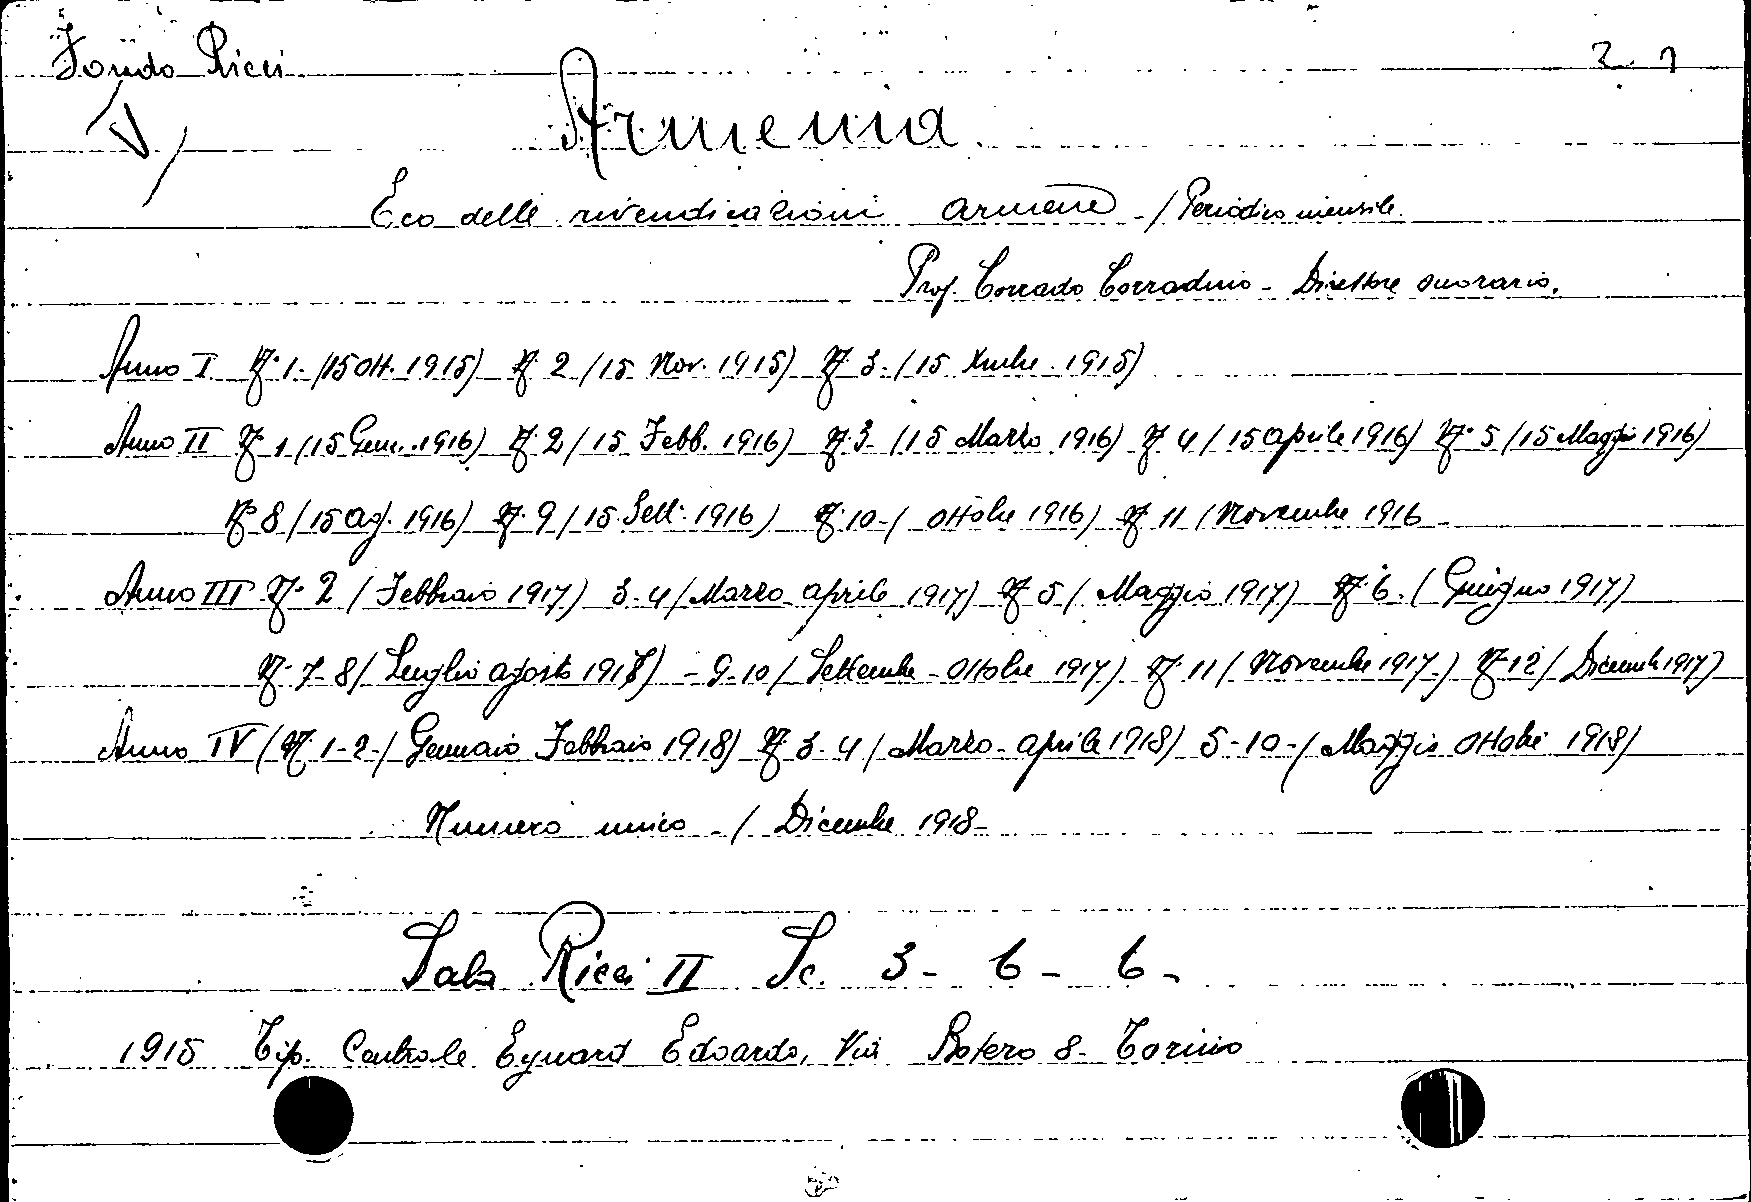 Fondo Ricci 2 1
V /
Armenia
Eco delle rivendicazioni armene - / Periodico mensile.
Prof. Corrado Corradino - Direttore onorario.
Anno I N. 1. (15 Ott. 1915) N. 2 (15 Nov. 1915) N. 3. (15 Xmbre 1915)
Anno II N. 1 (15 Genn. 1916) N. 2 (15 Febb. 1916) N. 3 - (15 Marzo 1916) N. 4 (15 aprile 1916) N. 5 (15 Maggio 1916)
N. 8 (15 ag. 1916) N. 9 (15 Sett. 1916) N. 10 - ( Ottobre 1916) N. 11 (Novembre 1916 -
Anno III N. 2 (Febbraio 1917) 3-4 (Marzo aprile 1917) N. 5 (Maggio 1917) N. 6. (Giugno 1917)
N. 7-8 (Luglio agosto 1917) - 9-10 (Settembre - Ottobre 1917) N. 11 (Novembre 1917.) N. 12 (Dicemb 1917)
Anno IV (N. 1-2-/ Gennaio Febbraio 1918) N. 3-4 (Marzo - aprile 1918) 5-10-(Maggio Ottobre 1918)
Numero unico - / Dicembre 1918 -
Sala Ricci II Sc. 3 - 6 - 6 -
1915 Tip. Centrale Eynard Edoardo, Via Botero 8 - Torino